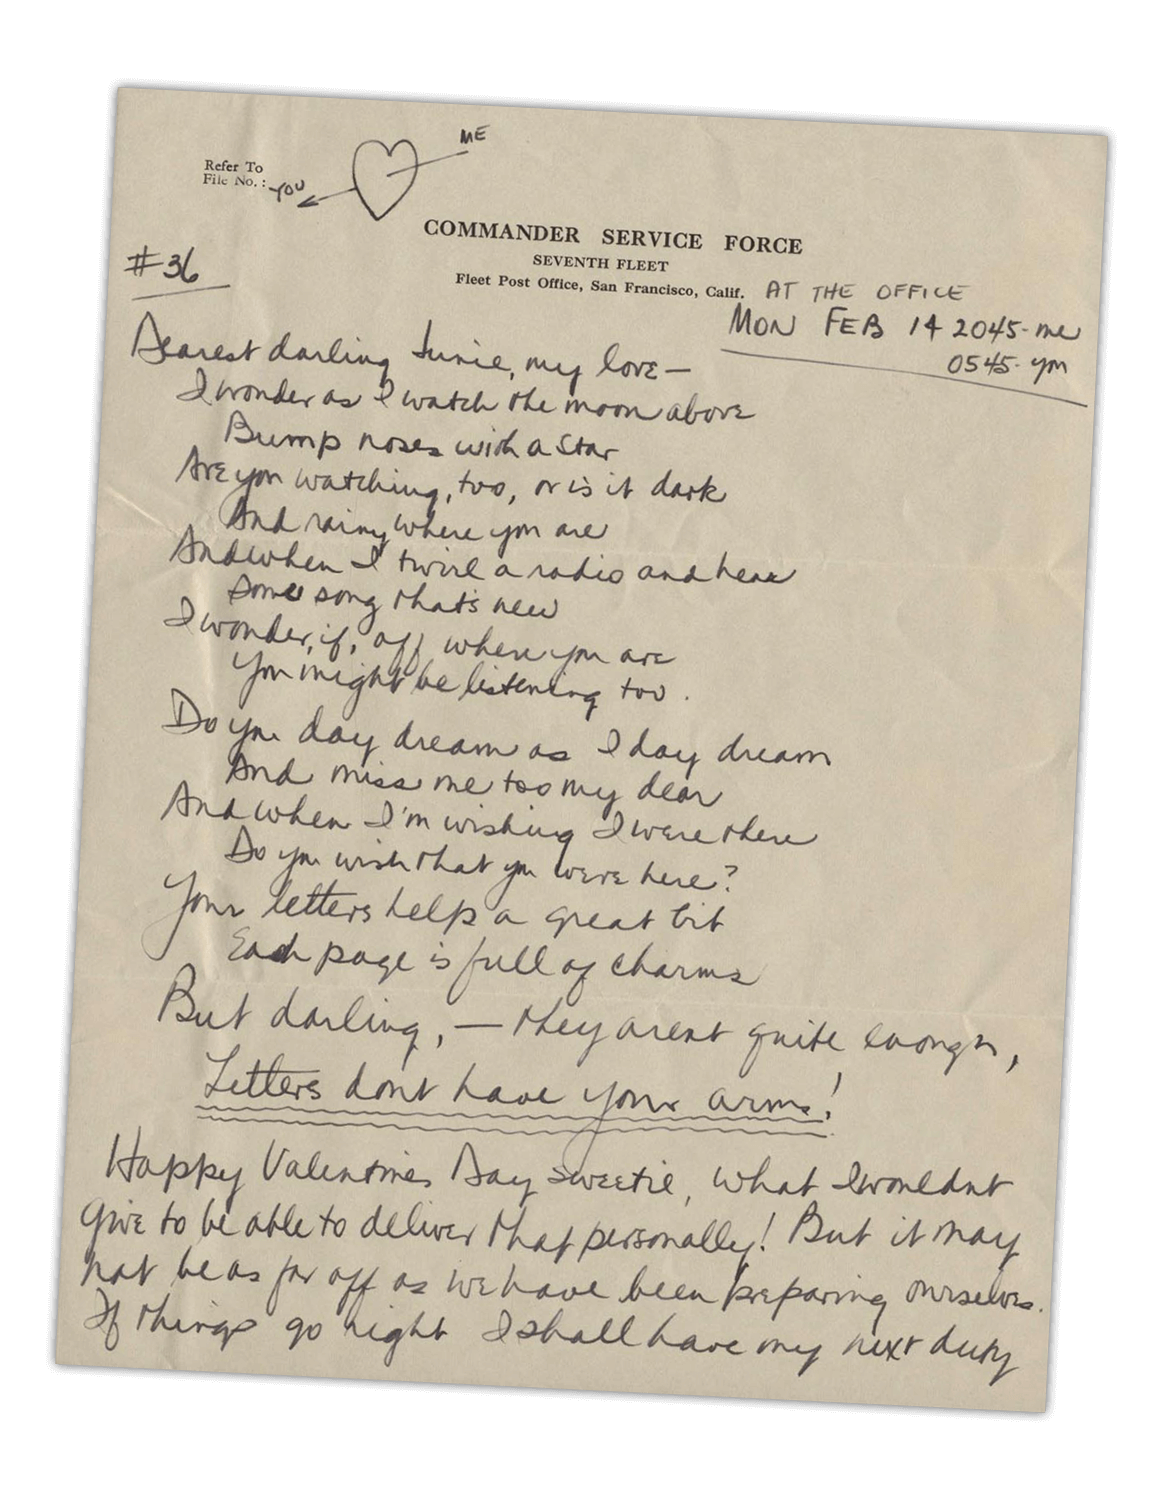 ME
Refer To
File No.: YOU
COMMANDER SERVICE FORCE
SEVENTH FLEET
Fleet Post Office, San Francisco, Calif. AT THE OFFICE
#36
MON FEB 14 2045-me
0545-yn
Dearest darling Junie, my love—
I wonder as I watch the moon above
Bump noses with a star
Are you watching, too, or is it dark
And rainy where you are
And when I twirl a radio and hear
Some song that's new
I wonder, if, off where you are
You might be listening too.
Do you day dream as I day dream
And miss me too my dear
And when I'm wishing I were there
Do you wish that you were here?
Your letters help a great bit
Each page is full of charms
But darling,— they arent quite enough,
Letters dont have your arms!
Happy Valentines Day sweetie, what I wouldnt
give to be able to deliver that personally! But it may
not be as far off as we have been preparing ourselves.
If things go right I shall have my next duty